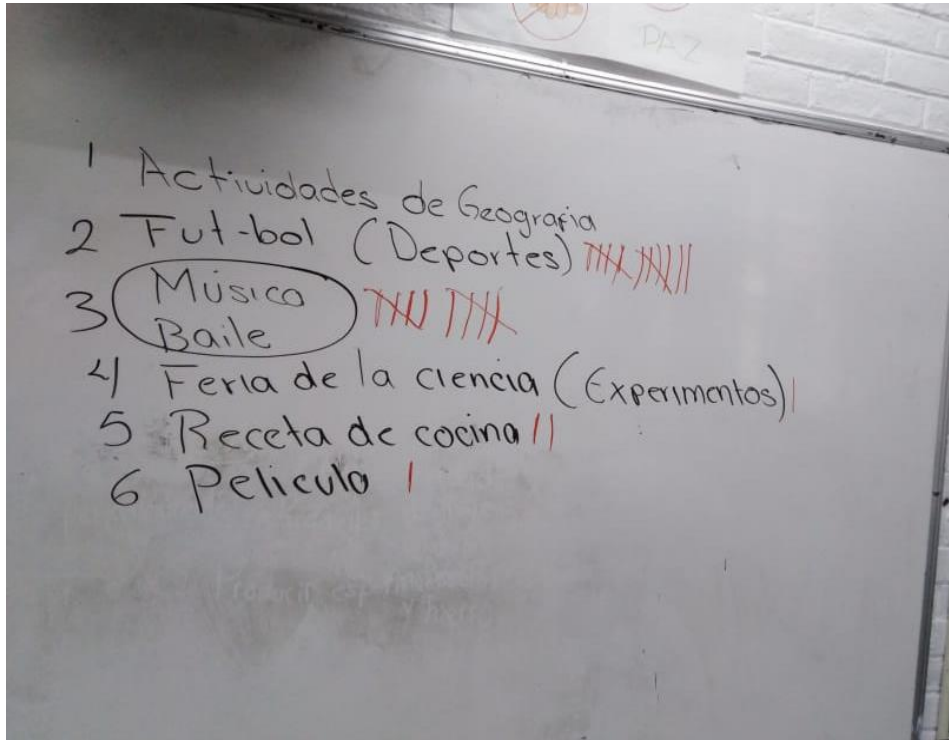 PAZ
1 Actividades de Geografia
2 Fut-bol (Deportes)
3 Música
Baile
4 Feria de la ciencia (Experimentos)
5 Receta de cocina
6 Pelicula